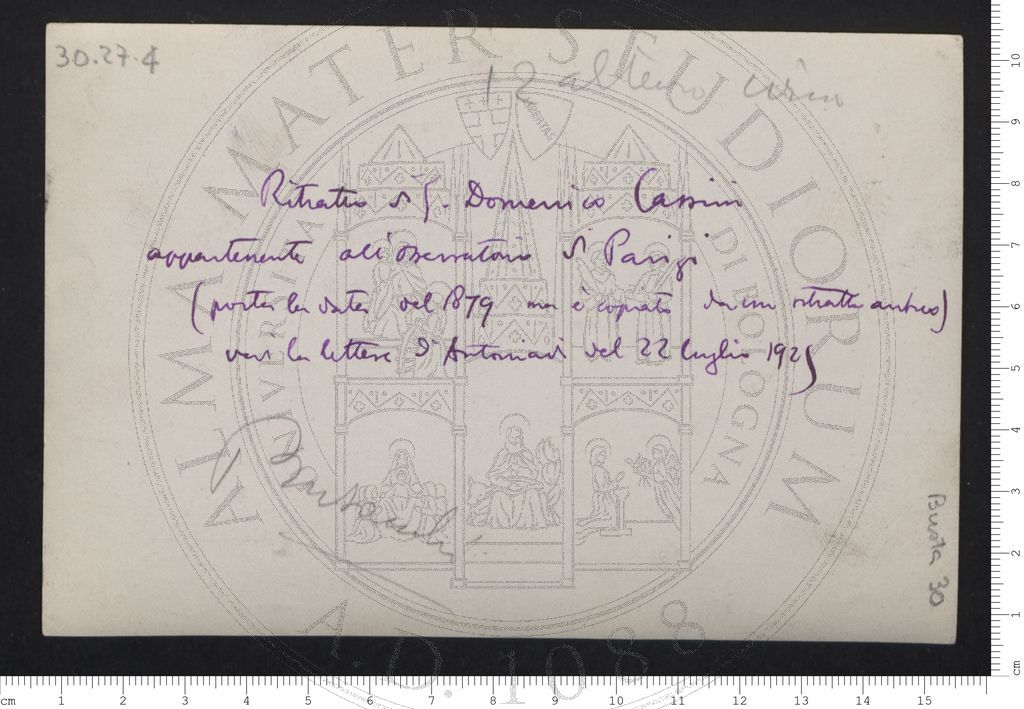 30.27.4
12 altezza cirm
Ritratto di G. Domenico Cassini
appartenente all'osservatorio di Parigi
(porta la data del 1879 ma è copiato da un ritratto antico)
vedi la lettera d'Antoniadi del 22 luglio 1925
Busta 30
ALMA MATER STUDIORUM
UNIVERSITÀ DI BOLOGNA
LIBERTAS
A.D. 1088
cm 1 2 3 4 5 6 7 8 9 10 11 12 13 14 15
cm 1 2 3 4 5 6 7 8 9 10